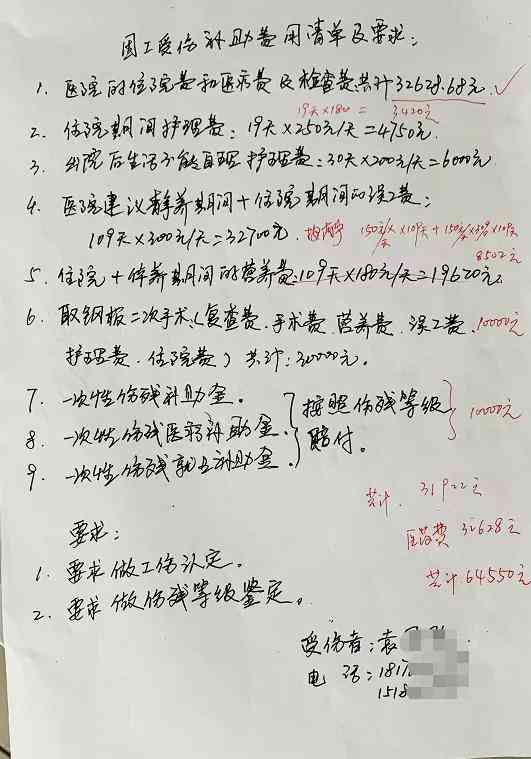 因工受伤补助费用清单及要求:
1. 医院的住院费和医药费及检查费共计32628.68元 ✓
19天×180= 3420元
2. 住院期间护理费:19天×250元/天=4750元.
3. 出院后生活不能自理护理费:30天×200元/天=6000元
4. 医院建议静养期间+住院期间的误工费:
109天×300元/天=32700元.
8502元
5. 住院+停养期间的营养费:109天×180元/天=19620元
6. 取钢板二次手术(复查费.手术费.营养费.误工费. 10000元
护理费.住院费)共计:30000元.
7. 一次性伤残补助金.
8. 一次性伤残医疗补助金. 按照伤残等级 10000元
9. 一次性伤残就业补助金. 赔付.
共计. 31922元
医药费 32628元
共计64550元
要求:
1. 要求做工伤认定.
2. 要求做伤残等级鉴定.
受伤者:袁
电 话:1817
1518